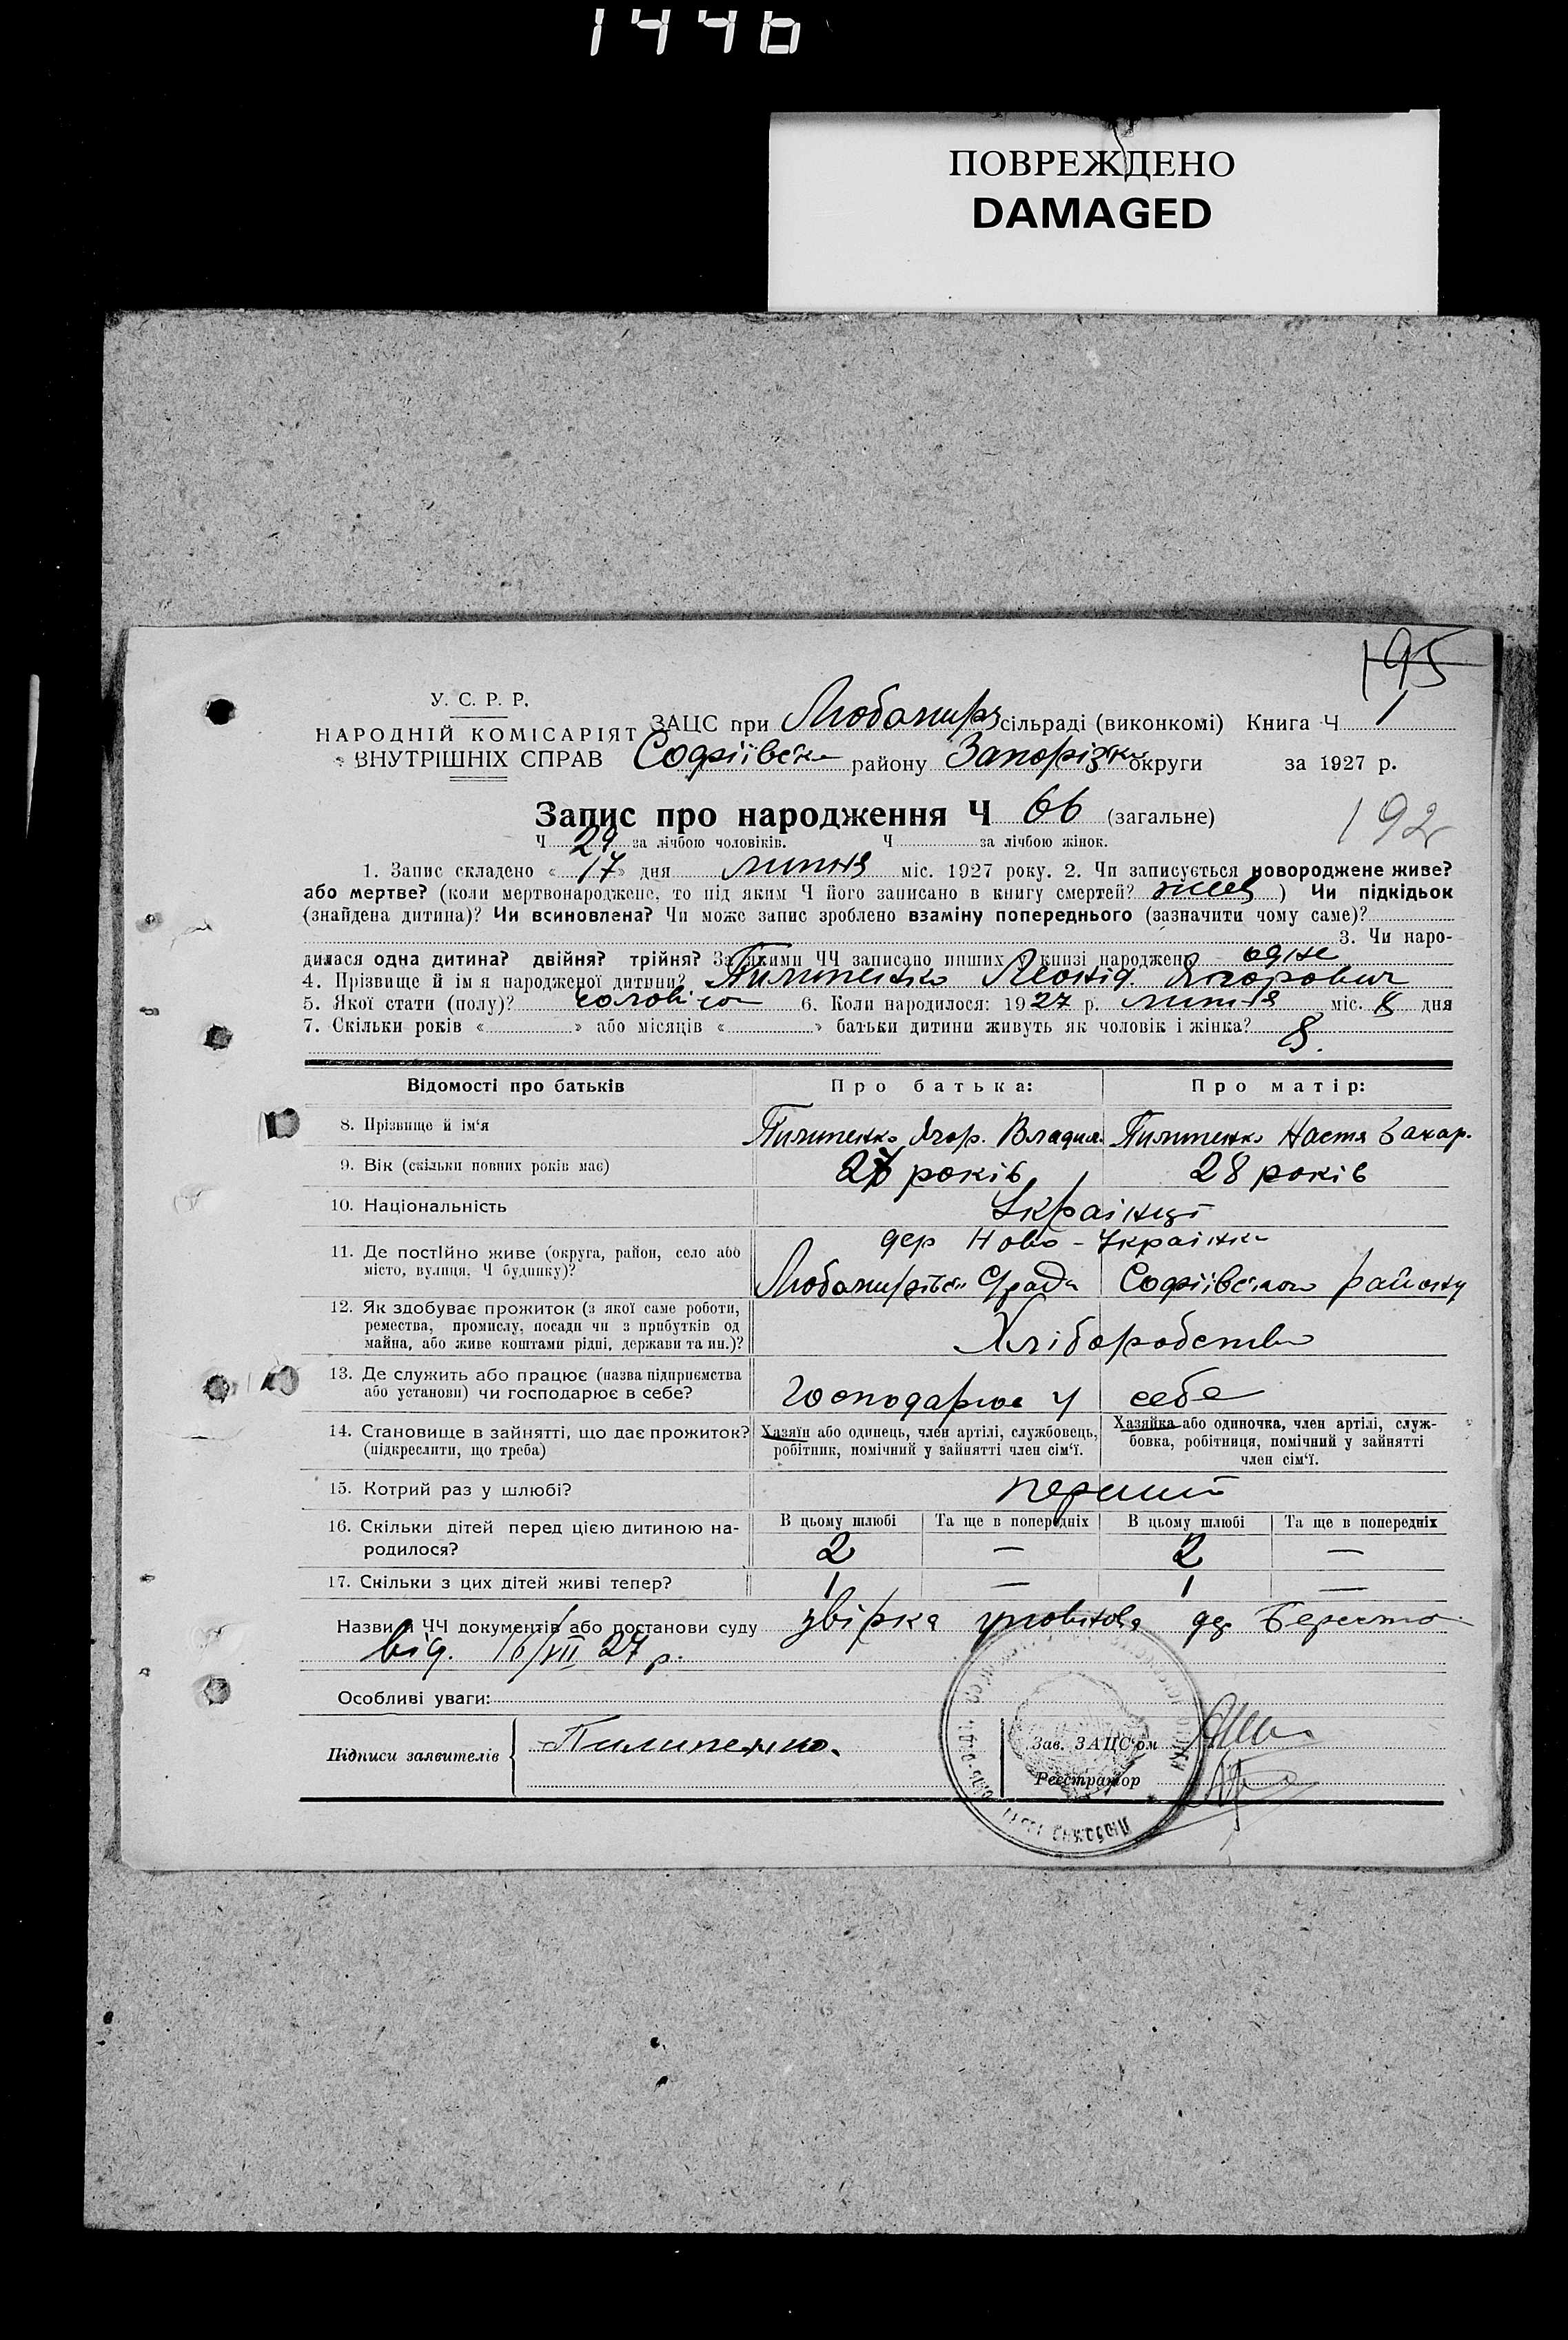 1446
ПОВРЕЖДЕНО
DAMAGED
195
У. С. Р. Р.
НАРОДНІЙ КОМІСАРІЯТ
ВНУТРІШНІХ СПРАВ
ЗАЦС при Любомир сільраді (виконкомі) Книга Ч 1
Софіївськ району Запорізьк округи за 1927 р.
Запис про народження Ч 66 (загальне)
192
Ч 29 за лічбою чоловіків. Ч за лічбою жінок.
1. Запис складено « 17 » дня липня міс. 1927 року. 2. Чи записується новороджене живе?
або мертве? (коли мертвонароджене, то під яким Ч його записано в книгу смертей? живе ) Чи підкідьок
(знайдена дитина)? Чи всиновлена? Чи може запис зроблено взаміну попереднього (зазначити чому саме)?
3. Чи наро-
дилася одна дитина? двійня? трійня? За якими ЧЧ записано инших в книзі народжень одне
4. Прізвище й ім я народженої дитини? Пилипенко Леонід Ягорович
5. Якої стати (полу)? 6. Коли народилося: 1927 р. липня міс. 8 дня
7. Скільки років « » або місяців « » батьки дитини живуть як чоловік і жінка? 8.
Відомості про батьків Про батька: Про матір:
8. Прізвище й ім'я Пилипенко Ягор. Владим. Пилипенко Настя Захар.
9. Вік (скільки повних років має) 27 років 28 років
10. Національність Українці
11. Де постійно живе (округа, район, село або
місто, вулиця, Ч будинку)?
дер Ново-Українка
Любомирівськ С/рада Софіївського району
12. Як здобуває прожиток (з якої саме роботи,
ремества, промислу, посади чи з прибутків од
майна, або живе коштами рідні, держави та ин.)?
Хліборобство
13. Де служить або працює (назва підприємства
або установи) чи господарює в себе?
Господарює у себе
14. Становище в зайнятті, що дає прожиток?
(підкреслити, що треба)
Хазяїн або одинець, член артілі, службовець,
робітник, помічний у зайнятті член сім'ї.
Хазяйка або одиночка, член артілі, служ-
бовка, робітниця, помічний у зайнятті
член сім'ї.
15. Котрий раз у шлюбі? перший
16. Скільки дітей перед цією дитиною на-
родилося?
В цьому шлюбі Та ще в попередніх В цьому шлюбі Та ще в попередніх
2 — 2 —
17. Скільки з цих дітей живі тепер? 1 — 1 —
Назви й ЧЧ документів або постанови суду звірка
від. 16/VII 27 р.
Особливі уваги:
Підписи заявителів Пилипенко.
Зав. ЗАЦС'ом
Реєстратор